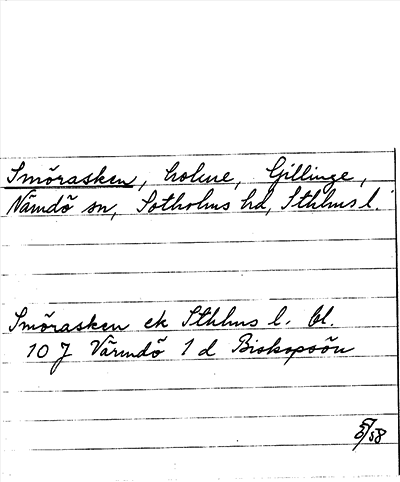 Smörasken, holme, Gillinge,
Nämdö sn, Sotholms hd, Sthlms l.
Smörasken ek Sthlms l. bl.
10 J Värmdö 1 d Biskopsön
/58